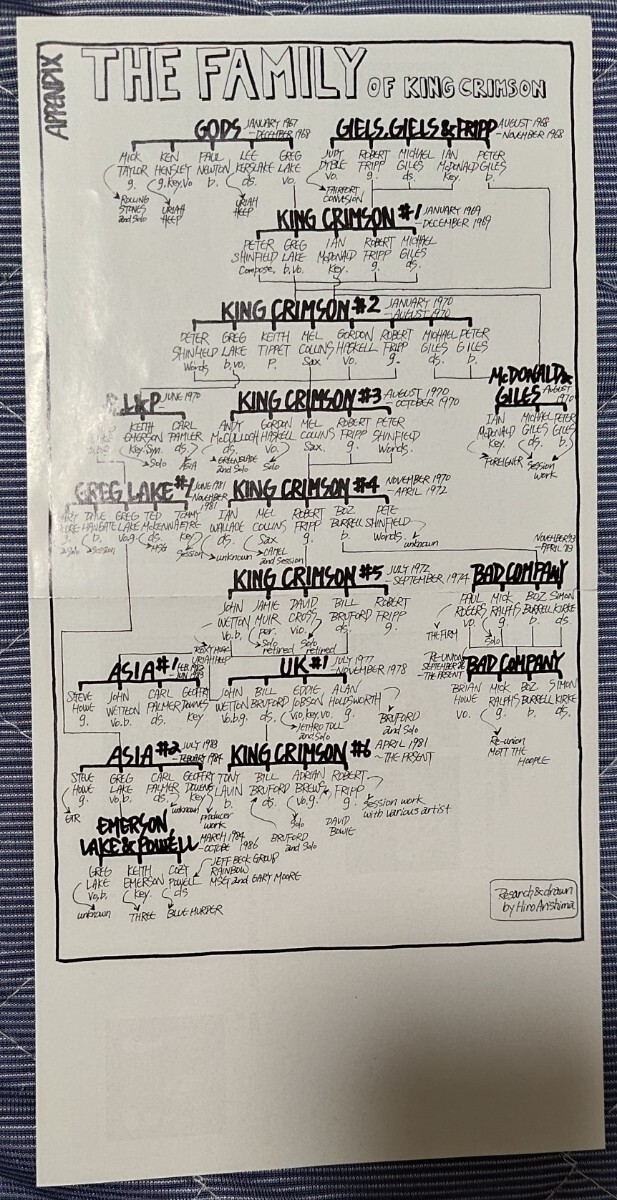 APPENDIX
THE FAMILY OF KING CRIMSON
GODS JANUARY 1967 - DECEMBER 1968
MICK TAYLOR g.
KEN HENSLEY g, key, vo
PAUL NEWTON b.
LEE KERSLAKE ds.
GREG LAKE vo.
ROLLING STONES and Solo
URIAH HEEP
URIAH HEEP
GIELS, GIELS & FRIPP AUGUST 1968 - NOVEMBER 1968
JUDY DYBLE vo.
ROBERT FRIPP g.
MICHAEL GILES ds.
IAN McDONALD Key.
PETER GILES b.
FAIRPORT CONVENSION
KING CRIMSON #1 JANUARY 1969 - DECEMBER 1969
PETER SHINFIELD Compose.
GREG LAKE b, vo.
IAN McDONALD Key.
ROBERT FRIPP g.
MICHAEL GILES ds.
KING CRIMSON #2 JANUARY 1970 - AUGUST 1970
PETER SHINFIELD Words
GREG LAKE b, vo.
KEITH TIPPET P.
MEL COLLINS Sax
GORDON HASKELL vo.
ROBERT FRIPP g.
MICHAEL GILES ds.
PETER GILES b.
McDONALD & GILES AUGUST 1970
IAN McDONALD Key.
MICHAEL GILES ds.
PETER GILES b.
FOREIGNER
Session work
E.L&P JUNE 1970
KEITH EMERSON Key. Syn.
CARL PAMLER ds.
Solo
ASIA
KING CRIMSON #3 AUGUST 1970 - OCTOBER 1970
ANDY McCULLOCH ds.
GORDON HASKELL vo.
MEL COLLINS Sax.
ROBERT FRIPP g.
PETER SHINFIELD Words.
GREENSLADE and Solo
Solo
GREG LAKE #1 JUNE 1981 NOVEMBER 1981
GREG LAKE Vo, g.
TED McKENNA ds.
TOMMY EYRE Key
Solo
Session
MSG
Session
KING CRIMSON #4 NOVEMBER 1970 - APRIL 1972
IAN WALLACE ds.
MEL COLLINS Sax
ROBERT FRIPP g.
BOZ BURRELL b.
PETE SHINFIELD Words.
unknown
CAMEL and Session
unknown
KING CRIMSON #5 JULY 1972 - SEPTEMBER 1974
JOHN WETTON Vo, b.
JAMIE MUIR per.
DAVID CROSS vio.
BILL BRUFORD ds.
ROBERT FRIPP g.
ROXY MUSIC URIAH HEEP
Solo retired
Solo retired
NOVEMBER '73 - APRIL '73
BAD COMPANY
PAUL ROGERS vo.
MICK RALPHS g
BOZ BURRELL b.
SIMON KIRKE ds.
THE FIRM
Solo
RE-UNION SEPTEMBER - THE PRESENT
BAD COMPANY
BRIAN HOWE vo.
MICK RALPHS g.
BOZ BURRELL b.
SIMON KIRKE ds.
Re-union MOTT THE HOOPLE
ASIA #1
STEVE HOWE g.
JOHN WETTEON Vo, b.
CARL PALMER ds.
GEOFFRY DOWNS key
UK #1 JULY 1977 - NOVEMBER 1978
JOHN WETTON Vo. b. g.
BILL BRUFORD ds.
EDDIE JOBSON Vio, key, vo.
ALAN HOLDSWORTH g.
JETHRO TULL and Solo
BRUFORD and Solo
ASIA #2 JULY 1983 - FEBUARY 1984
STEVE HOWE g.
GREG LAKE Vo, b.
CARL PALMER ds.
GEOFFRY DOWENS key
GTR
unknown
producer work
KING CRIMSON #6 APRIL 1981 ~ THE PRSENT
TONY LAVIN b.
BILL BRUFORD ds.
ADRIAN BREWS Vo. g.
ROBERT FRIPP g.
BRUFORD
Solo and Solo
DAVID BOWIE
Session work with various artist
EMERSON LAKE & POWELL MARCH 1984 - OCTOBE 1986
GREG LAKE Vo, b.
KEITH EMERSON Key.
COZY POWELL ds
JEFF BECK GROUP
RAINBOW
MSG and GARY MOORE
unknown
THREE
BLUE MURDER
Research & drawn
by Hiro Arishima